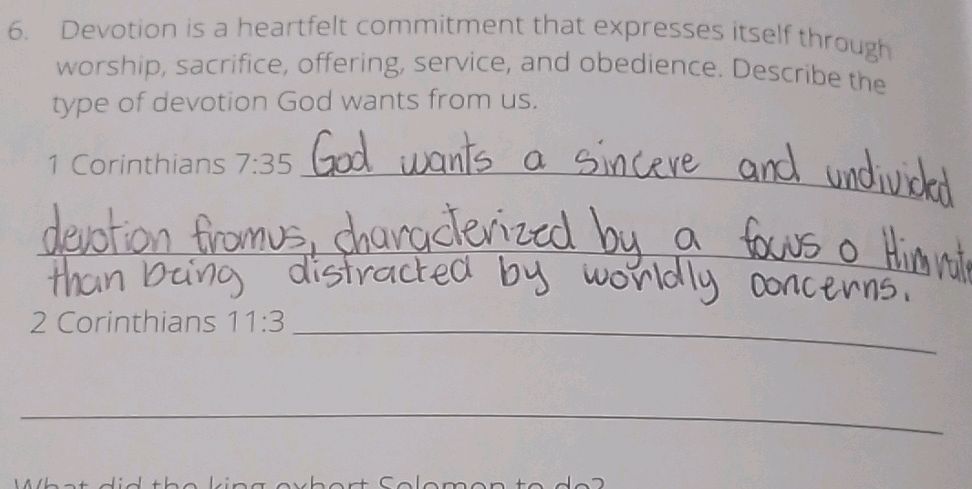 6. Devotion is a heartfelt commitment that expresses itself through
worship, sacrifice, offering, service, and obedience. Describe the
type of devotion God wants from us.
1 Corinthians 7:35 God wants a sincere and undivided
devotion from us, characterized by a focus o Him
than being distracted by worldly concerns.
2 Corinthians 11:3
What did the king exhort Solomon to do?